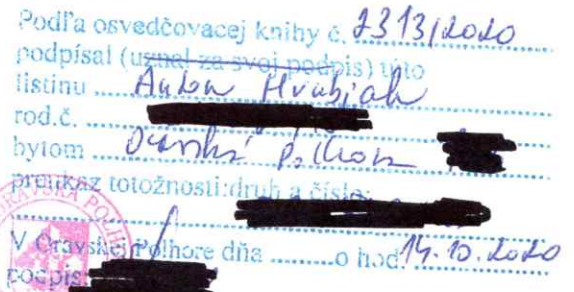 Podľa osvedčovacej knihy č. 2313/2020
podpísal (uznal za svoj podpis) túto
listinu Anton Hrubjak
rod.č.
bytom Oravská Polhora
preukaz totožnosti:druh a číslo:
V Oravskej Polhore dňa o hod. 14.10.2020
podpis: